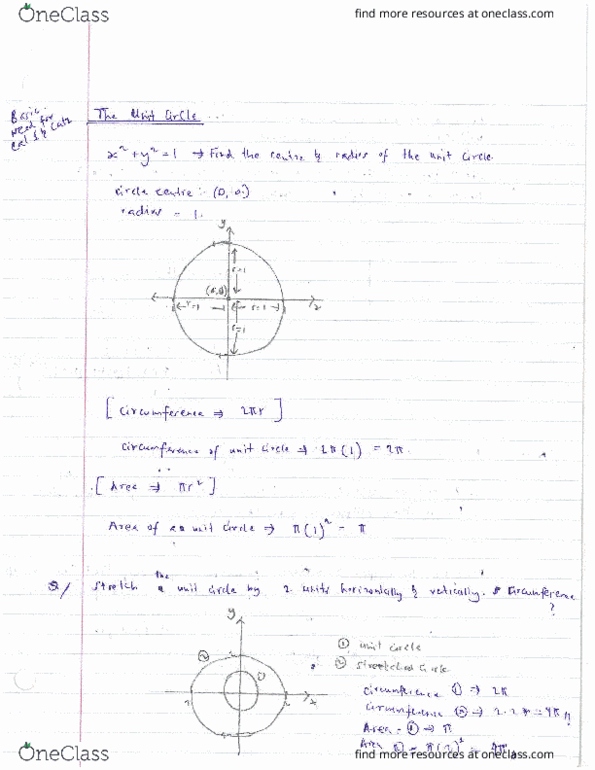 OneClass
find more resources at oneclass.com
Basic
Need for
Cal 1 & Cal 2
The Unit Circle
x² + y² = 1 → Find the centre & radius of the unit circle
circle centre :- (0, 0)
radius = 1.
y
r=1
(0,0)
r=1 r=1
x
r=1
[ Circumference ⇒ 2πr ]
Circumference of unit circle ⇒ 2π(1) = 2π.
[ Area ⇒ πr² ]
Area of a unit circle ⇒ π(1)² = π
Q/ Stretch the unit circle by 2 units horizontally & vertically. Circumference ?
y
① unit circle
② stretched circle
② ①
x
Circumference ① ⇒ 2π
Circumference ② ⇒ 2·2π = 4π
Area ① ⇒ π
Area ② = π(2)² = 4π
OneClass
find more resources at oneclass.com